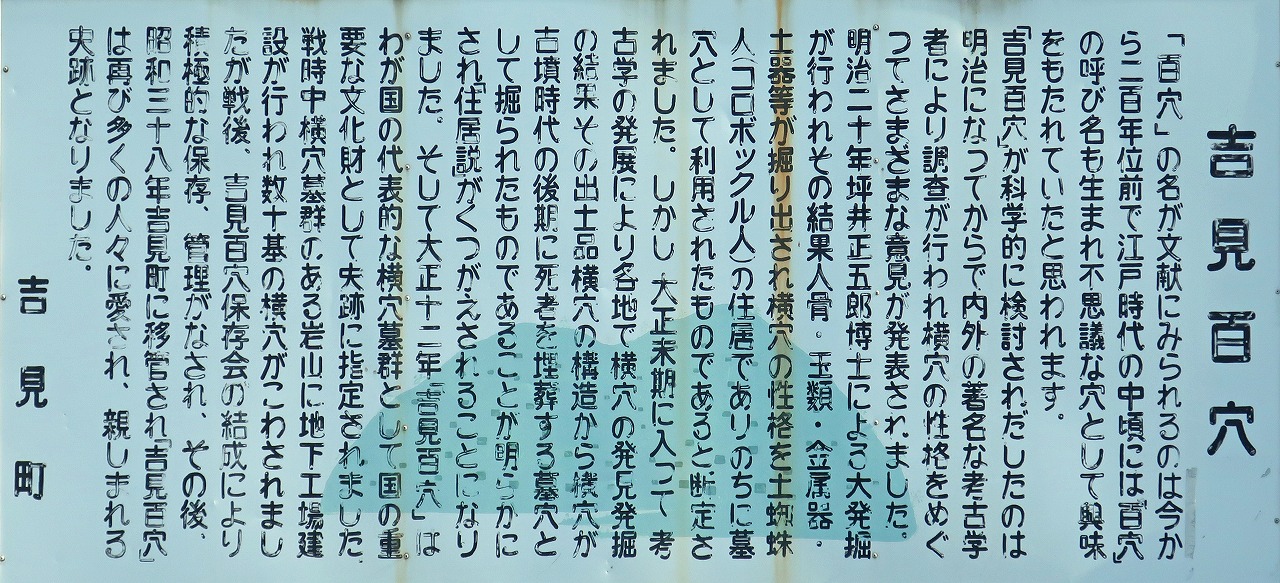 吉見百穴
「百穴」の名が文献にみられるのは今か
ら二百年位前で江戸時代の中頃には「百穴」
の呼び名も生まれ不思議な穴として興味
をもたれていたと思われます。
「吉見百穴」が科学的に検討されだしたのは
明治になってからで内外の著名な考古学
者により調査が行われ横穴の性格をめぐ
ってさまざまな意見が発表されました。
明治二十年坪井正五郎博士による大発掘
が行われその結果人骨・玉類・金属器・
土器等が掘り出され横穴の性格を土蜘蛛
人(コロボックル人)の住居でありのちに墓
穴として利用されたものであると、断定さ
れました。しかし 大正末期に入って 考
古学の発展により各地で横穴の発見発掘
の結果その出土品横穴の構造から横穴が
古墳時代の後期に死者を埋葬する墓穴と
して掘られたものであることが明らかに
され「住居説」がくつがえされることになり
ました。そして大正十二年「吉見百穴」は
わが国の代表的な横穴墓群として国の重
要な文化財として史跡に指定されました
戦時中横穴墓群のある岩山に地下工場建
設が行われ数十基の横穴がこわされまし
たが戦後、吉見百穴保存会の結成により
積極的な保存、管理がなされ、その後、
昭和三十八年吉見町に移管され「吉見百穴」
は再び多くの人々に愛され、親しまれる
史跡となりました。
吉見町